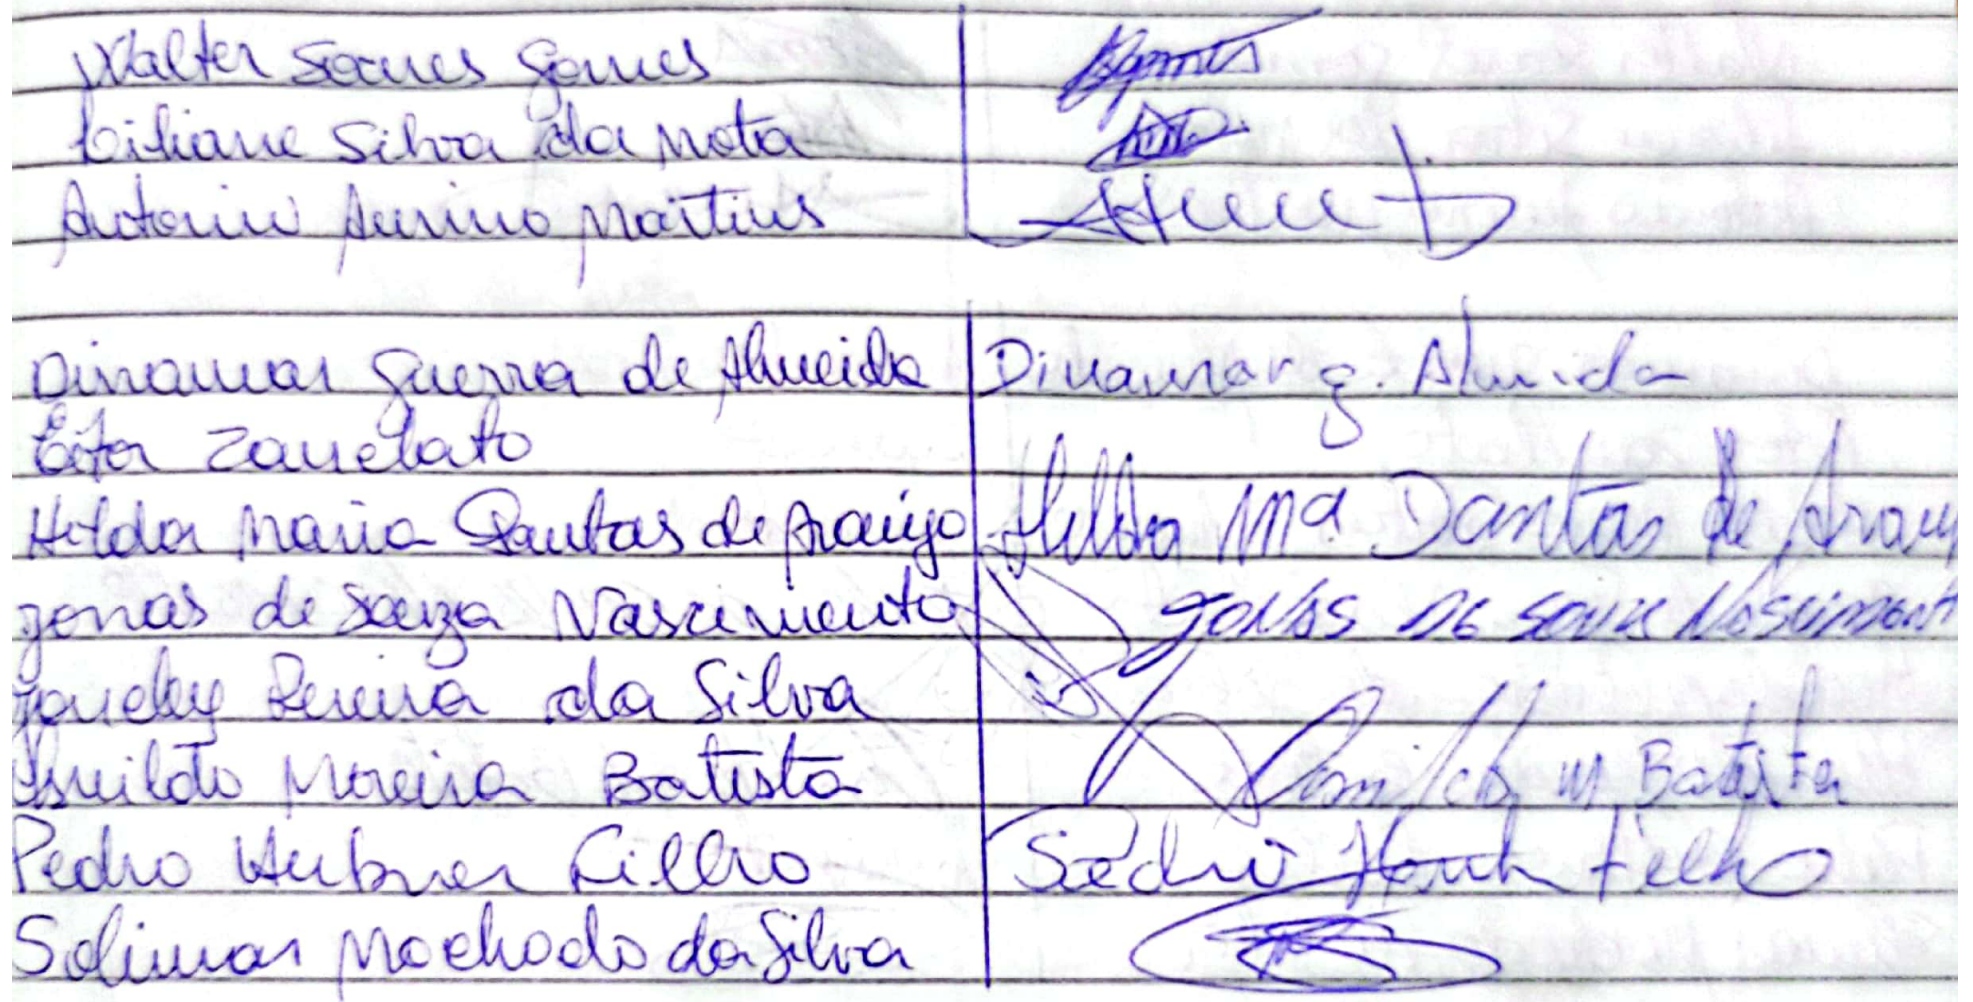 Walter Soares Gomes
Liliane Silva da Mota
Antonio Aurino Martins
Dinamar Guerra de Almeida Dinamar G. Almeida
Eitor Zanelato
Hilda Maria Dantas de Araújo Hilda Mª Dantas de Arauj
Jonas de Souza Nascimento JONAS DE SOUZA NASCIMENT
Pereira da Silva
Moreira Batista M Batista
Pedro Hubner Filho Pedro Filho
Solimar Machado da Silva